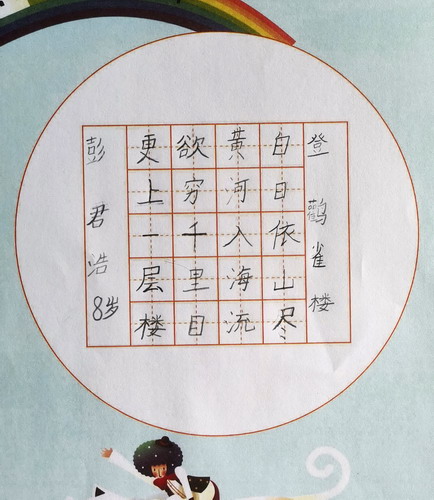 登鹳雀楼
自日依山尽
黄河入海流
欲穷千里目
更上一层楼
彭君浩8岁